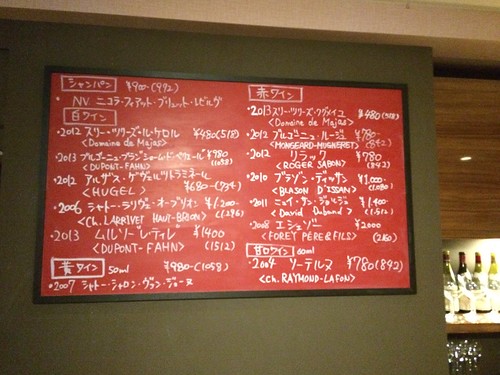 シャンパン ¥900-(972)
・NV ニコラ・フィアット・ブリュット・レゼルヴ
白ワイン
・2012 スリー・ツリーズ・ル・サロル ¥480(518)
<Domaine de Majas>
・2013 ブルゴーニュ・ブラン ¥980
<DUPONT-FAHN> (1058)
・2012 アルザス・ゲヴェルツトラミネール
<HUGEL> ¥680-(734)
・2006 シャトー・ラリヴェ・オー・ブリオン ¥1,200-
<Ch.LARRIVET HAUT-BRION> (1296)
・2013 ムルソー ¥1400
<DUPONT-FAHN> (1512)
黄ワイン 50ml ¥980-(1058)
・2007 シャトー・シャロン・ヴァン・ジョーヌ
赤ワイン
・2013 スリー・ツリーズ ¥480(518)
<Domaine de Majas>
・2012 ブルゴーニュ・ルージュ ¥780-
<MONGEARD-MUGNERET> (842)
・2012 リラック ¥780
<ROGER SABON> (842)
・2010 ブラゾン・ディッサン ¥1,000-
<BLASON D'ISSAN> (1080)
・2011 ニュイ・サン・ジョルジュ ¥1,400-
<David Duband> (1512)
・2008 エシェゾー ¥2000
<FOREY PÈRE&FILS> (2160)
甘口ワイン 60ml
・2004 ソーテルヌ ¥780(842)
<Ch.RAYMOND-LAFON>